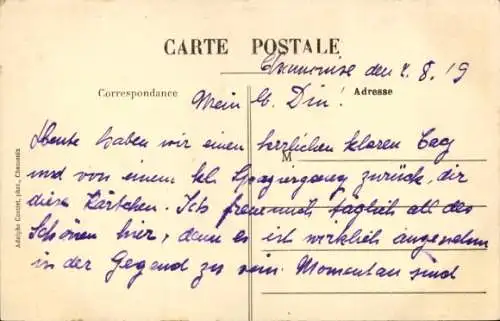 CARTE POSTALE
Chamonise den 4.8.19
Correspondance
Adresse
Mein lb. Din!
Heute haben wir einen herrlichen klaren Tag
M
und von einem kl. Spaziergang zurück, dir
diese Kärtchen. Ich freue mich täglich all des
Schönen hier, denn es ist wirklich angenehm
in der Gegend zu sein. Momentan sind